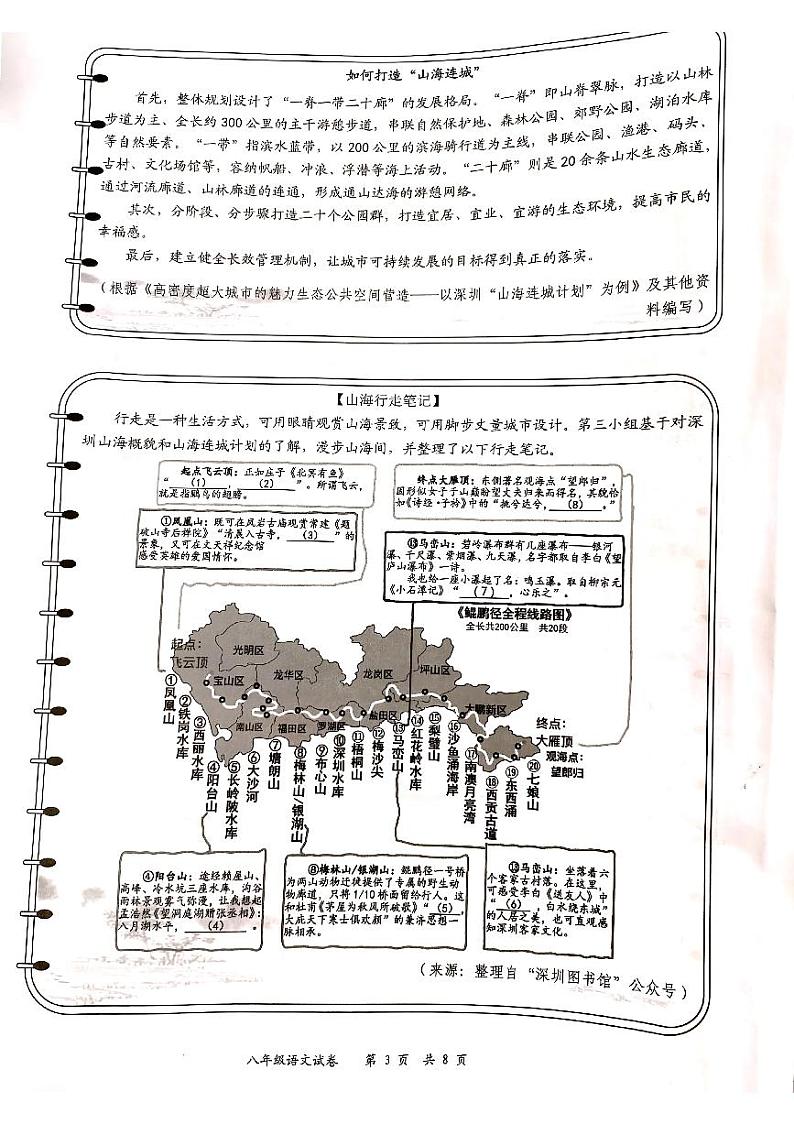 如何打造“山海连城”
首先，整体规划设计了“一脊一带二十廊”的发展格局。“一脊”即山脊翠脉，打造以山林
步道为主、全长约300公里的主干游憩步道，串联自然保护地、森林公园、郊野公园、湖泊水库
等自然要素。“一带”指滨水蓝带，以200公里的滨海骑行道为主线，串联公园、渔港、码头、
古村、文化场馆等，容纳帆船、冲浪、浮潜等海上活动。“二十廊”则是20余条山水生态廊道，
通过河流廊道、山林廊道的连通，形成通山达海的游憩网络。
其次，分阶段、分步骤打造二十个公园群，打造宜居、宜业、宜游的生态环境，提高市民的
幸福感。
最后，建立健全长效管理机制，让城市可持续发展的目标得到真正的落实。
（根据《高密度超大城市的魅力生态公共空间营造——以深圳“山海连城计划”为例》及其他资
料编写）
【山海行走笔记】
行走是一种生活方式，可用眼睛观赏山海景致，可用脚步丈量城市设计。第三小组基于对深
圳山海概貌和山海连城计划的了解，漫步山海间，并整理了以下行走笔记。
起点飞云顶：正如庄子《北冥有鱼》
“（1），（2）”。所谓飞云，
就是指鹏鸟的翅膀。
终点大雁顶：东侧著名观海点“望郎归”，
因形似女子于山巅盼望丈夫归来而得名，其貌恰
如《诗经·子衿》中的“挑兮达兮，（8）。”
①凤凰山：既可在凤岩古庙观赏常建《题
破山寺后禅院》“清晨入古寺，（3）”的
景象，又可在文天祥纪念馆
感受英雄的爱国情怀。
⑬马峦山：碧岭瀑布群有几座瀑布——银河
瀑、千尺瀑、紫烟瀑、九天瀑，名字都取自李白《望
庐山瀑布》一诗。
我也给一座小瀑起了名：鸣玉瀑。取自柳宗元
《小石潭记》“（7），心乐之”。
《鲲鹏径全程线路图》
全长共200公里 共20段
起点：
飞云顶
光明区
宝山区
龙华区
龙岗区
坪山区
大鹏新区
南山区
福田区
罗湖区
盐田区
终点：
大雁顶
观海点：
望郎归
①凤凰山
②铁岗水库
③西丽水库
④阳台山
⑤长岭陂水库
⑥大沙河
⑦塘朗山
⑧梅林山/银湖山
⑨布心山
⑩深圳水库
⑪梧桐山
⑫梅沙尖
⑬马峦山
⑭红花岭水库
⑮梨壁山
⑯沙鱼涌海岸
⑰南澳月亮湾
⑱西贡古道
⑲东西涌
⑳七娘山
④阳台山：途经赖屋山、
高峰、冷水坑三座水库，沟谷
雨林景观雾气弥漫，让我想起
孟浩然《望洞庭湖赠张丞相》：
八月湖水平，（4）。
⑧梅林山/银湖山：鲲鹏径一号桥
为两山动物迁徙提供了专属的野生动
物廊道，只将1/10桥面留给行人。这
和杜甫《茅屋为秋风所破歌》“（5），
大庇天下寒士俱欢颜”的兼济思想一
脉相承。
⑬马峦山：坐落着六
个客家古村落。在这里，
可感受李白《送友人》中
“（6），白水绕东城”
的人居之美，也可直观感
知深圳客家文化。
（来源：整理自“深圳图书馆”公众号）
八年级语文试卷 第 3 页 共 8 页